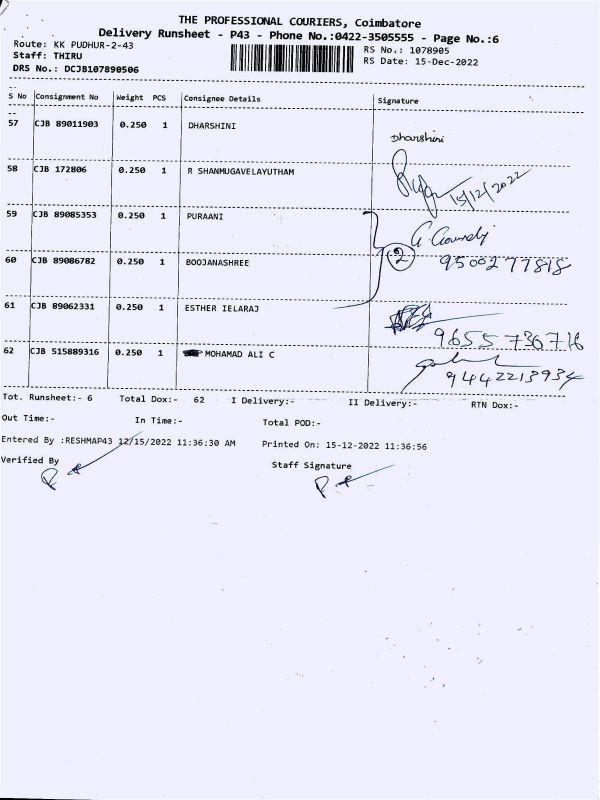 THE PROFESSIONAL COURIERS, Coimbatore
Delivery Runsheet - P43 - Phone No.:0422-3505555 - Page No.:6
Route: KK PUDHUR-2-43
RS No.: 1078905
Staff: THIRU
RS Date: 15-Dec-2022
DRS No.: DCJB107890506
S No Consignment No Weight PCS Consignee Details Signature
57 CJB 89011903 0.250 1 DHARSHINI Dharshini
58 CJB 172806 0.250 1 R SHANMUGAVELAYUTHAM 15/12/2022
59 CJB 89085353 0.250 1 PURAANI
2
60 CJB 89086782 0.250 1 BOOJANASHREE 9500277818
61 CJB 89062331 0.250 1 ESTHER IELARAJ
9655736716
62 CJB 515889316 0.250 1 MOHAMAD ALI C
9442213934
Tot. Runsheet:- 6 Total Dox:- 62 I Delivery:- II Delivery:- RTN Dox:-
Out Time:- In Time:- Total POD:-
Entered By :RESHMAP43 12/15/2022 11:36:30 AM Printed On: 15-12-2022 11:36:56
Verified By Staff Signature